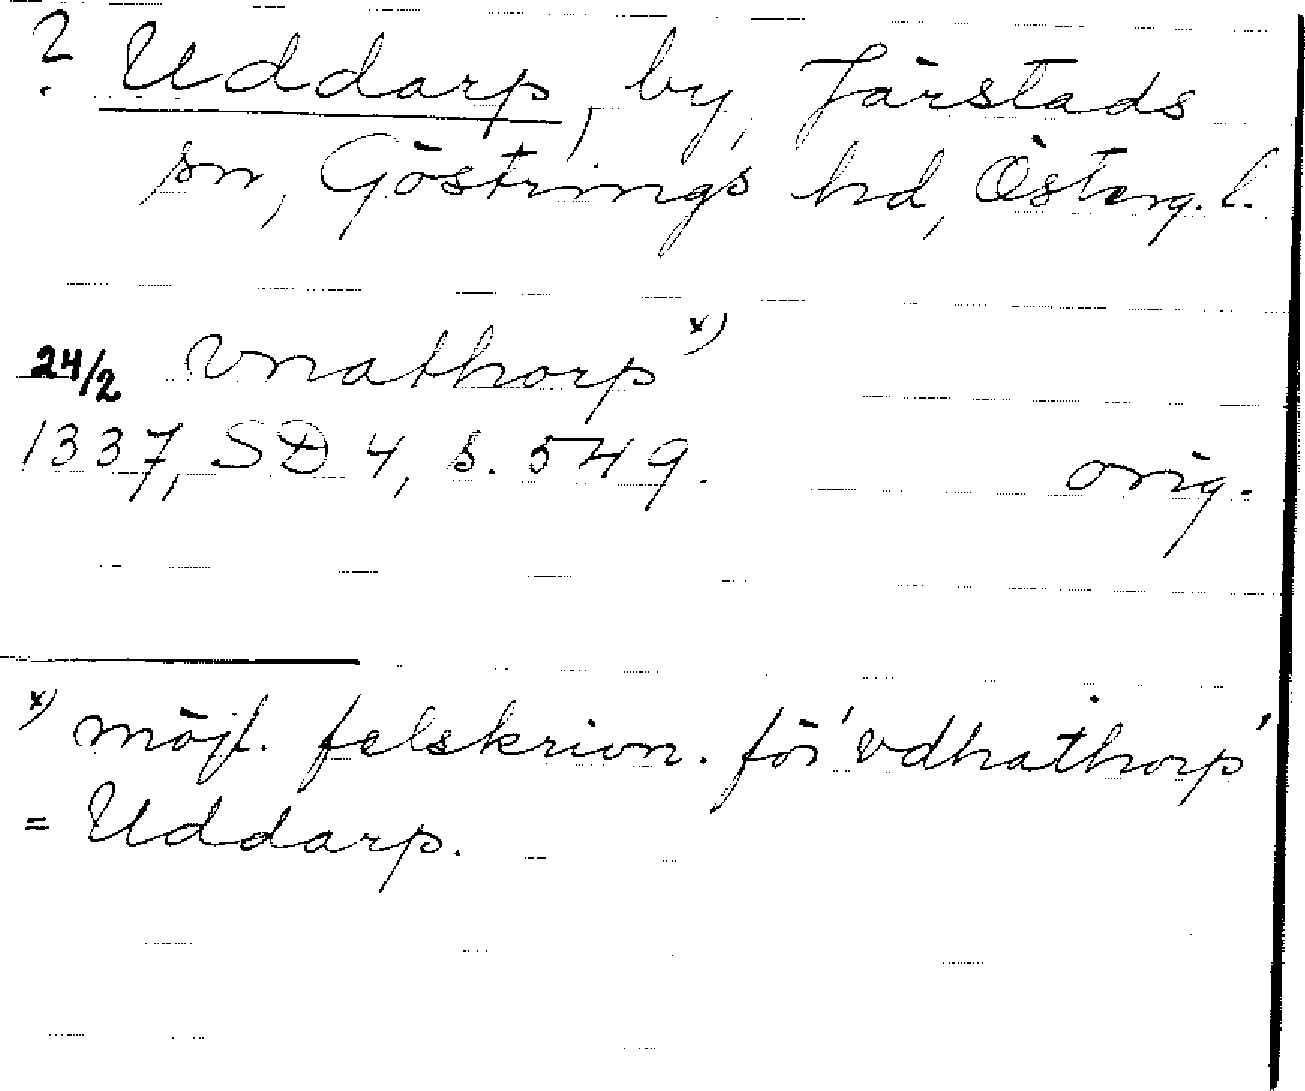 ? Uddarp, by, Järstads
sn, Göstrings hd, Österg. l.
24/2 vnathorp x)
1337, SD 4, s. 549. orig.
x) möjl. felskrivn. för 'vdhathorp'
= Uddarp.